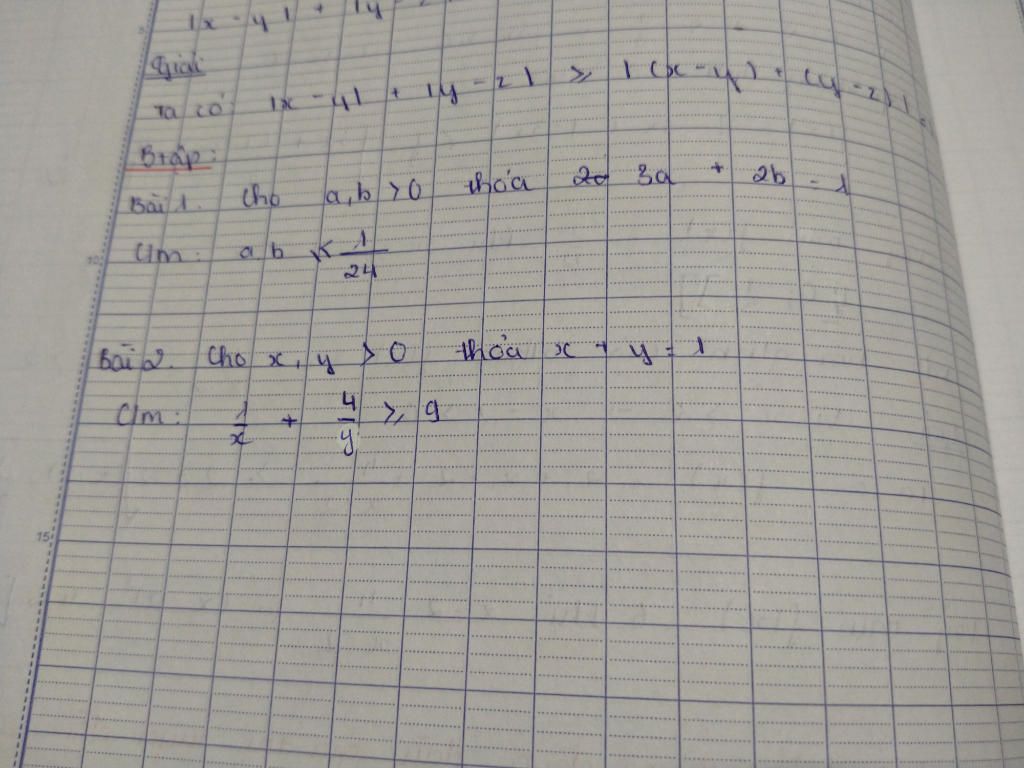 |x - y| + |y -
Giải
Ta có: |x - y| + |y - z| ≥ |(x - y) + (y - z)|
B tập:
Bài 1. Cho a, b > 0 thỏa 3a + 2b = 1
Cm: a, b ≤ 1/24
Bài 2. Cho x, y > 0 thỏa x + y = 1
Cm: 1/x + 4/y ≥ 9
10
15